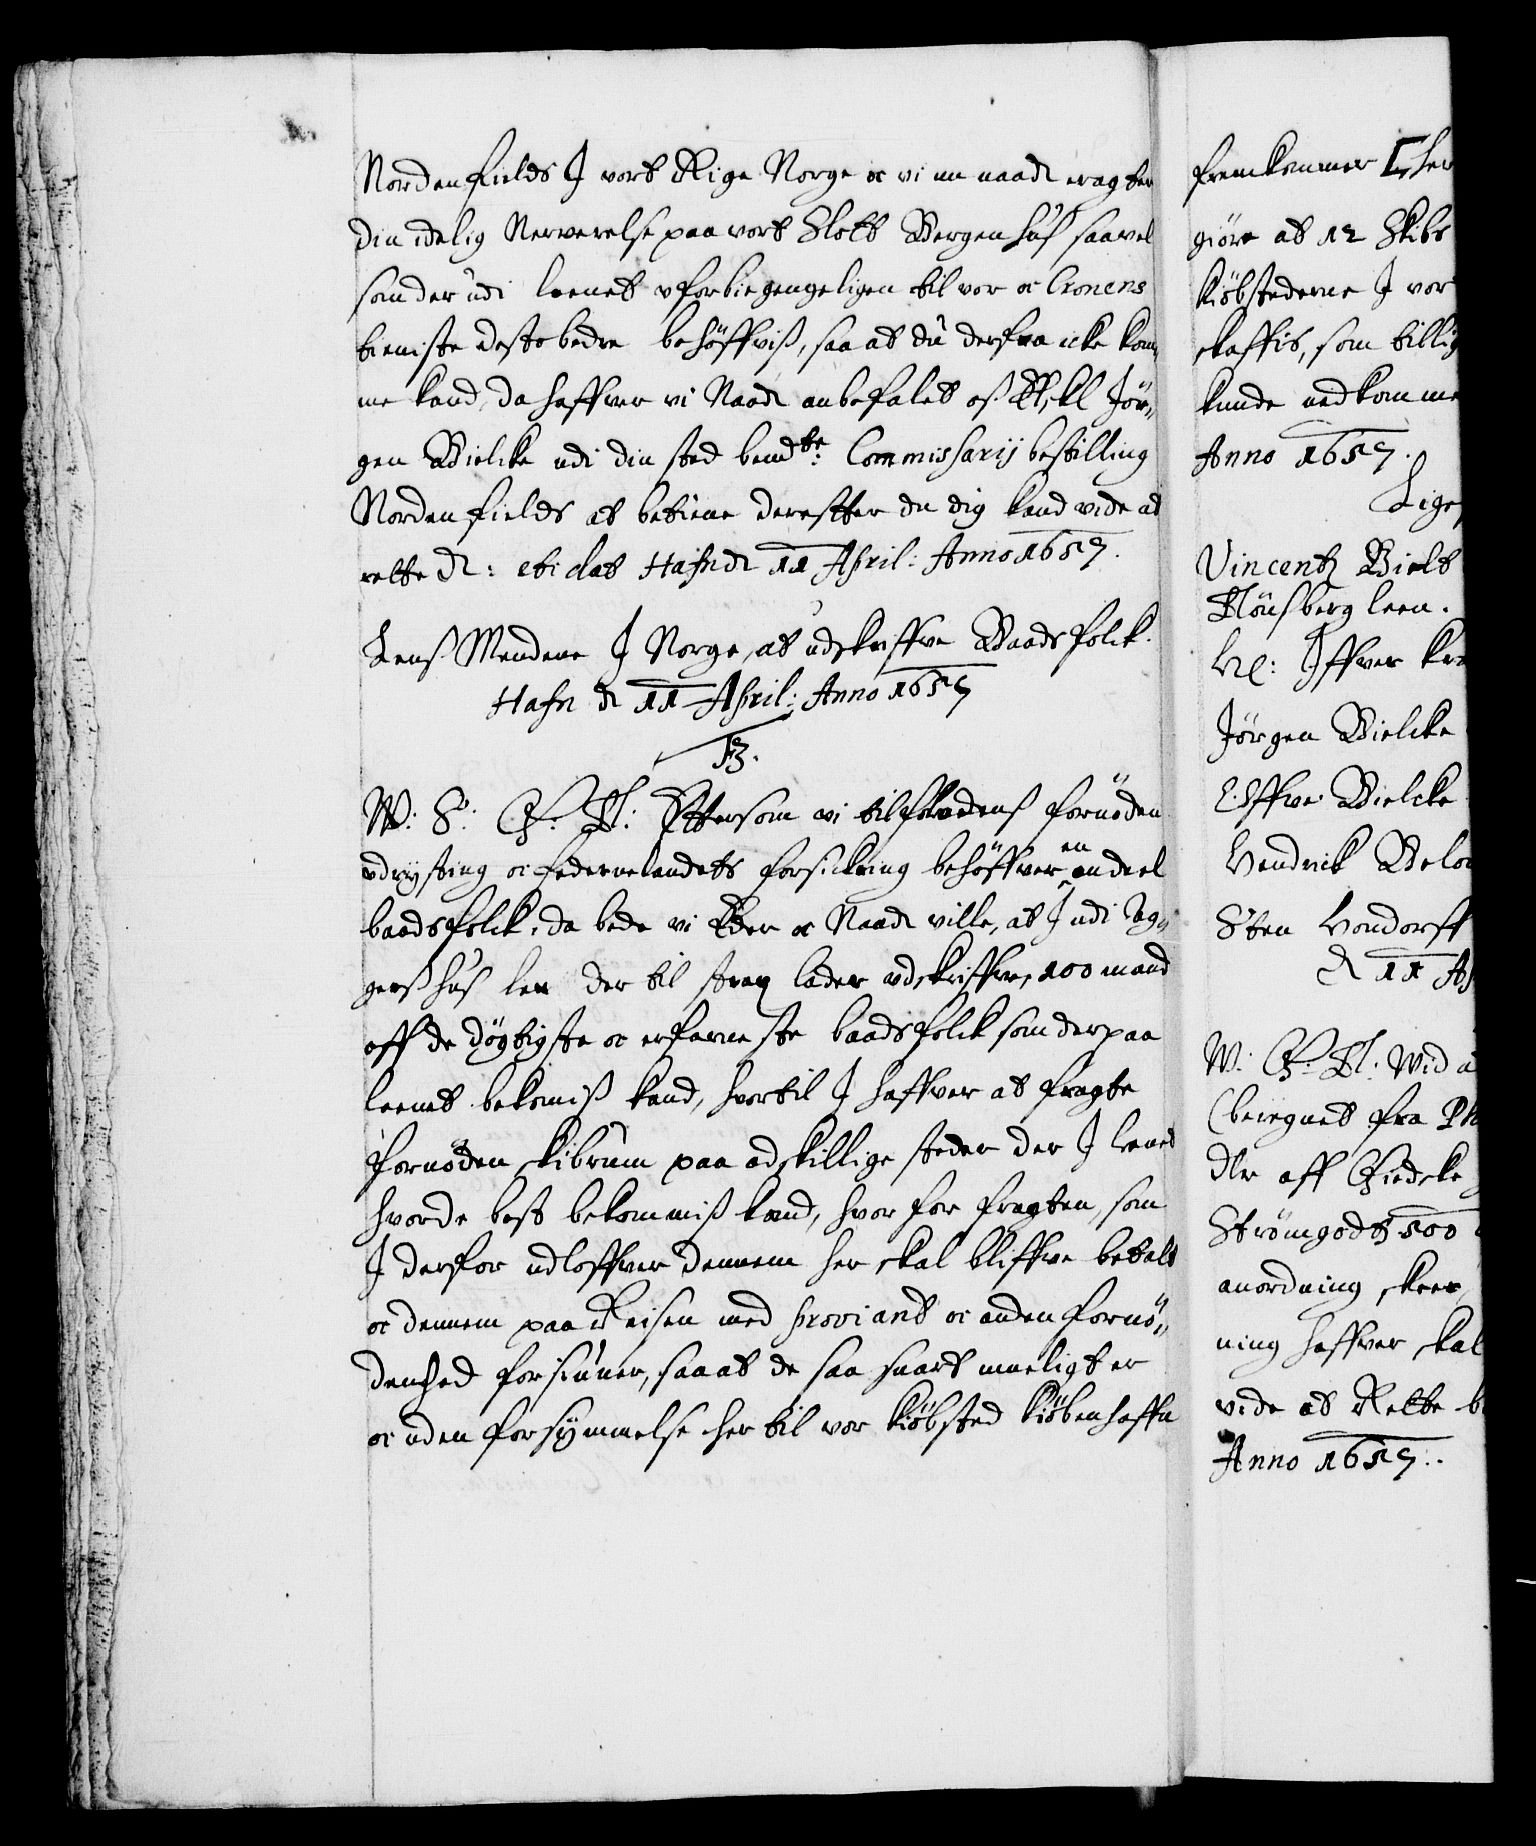 Nordenfields I vort Rige Norge oc vi nu naadt eragter
din idelig Nerverelse paa vort Slott Bergenhus saavel
som der udi leenet uforbiegengeligen til vor oc Cronens
tieniste desto bedre behöffvis, saa at du derfra icke kom,
me kand, da haffver vi Naadt anbefalet os Elskl Jör,
gen Bielcke udi din sted bemdte: Commissarij bestilling
Nordenfields at betiene derefter du dig kand vide at
rette Dt: etc dat Hafn dt 11 April: Anno 1657.
Lens Mendene I Norge, at udskriffve Baadsfolck.
Hafn dt 11 April: Anno 1657
F3.
W: S: G: T: Eftersom vi til flodens fornöden
udrysting oc federnelandets forsickring behöffver en andeel
baadsfolck, da bede vi Eder oc Naadt ville, at I udi Ag,
gershus len der til strax lader udskriffve, 100 mand
aff de dögtigste oc erfarneste baadsfolck som der paa
leenet bekomis kand, hvortil I haffver at fragte
fornöden skibrum paa adskillige steder der I leenet
hvor de best bekommis kand, hvor for fragten, som
I derfor udloffver dennem her skal bliffve betalt
oc dennem paa Reisen med proviant oc anden fornö,
denhed forsiuner, saa at de saa snart mueligt er
oc uden forsymmelse her til vor kiöbsted Kiöbenhaffn
fremkommer
giöre at 12 Skibs
Kiöbstederne I vor
skaffis, som billig
kunde nedkomme
Anno 1657.
Lige
Vincentz Bielt
Tönsberg leen.
He: Iffver Kra
Jörgen Bielcke
Offve Bielcke
Hendrick Belo
Sten Hondorff
dt 11 Ap
W: G: T: Wid a
(beregnet fra
dlr aff Giedske
Strömgodtz 500
anordning skeer
ning haffver skal
vide at Rette
Anno 1657.